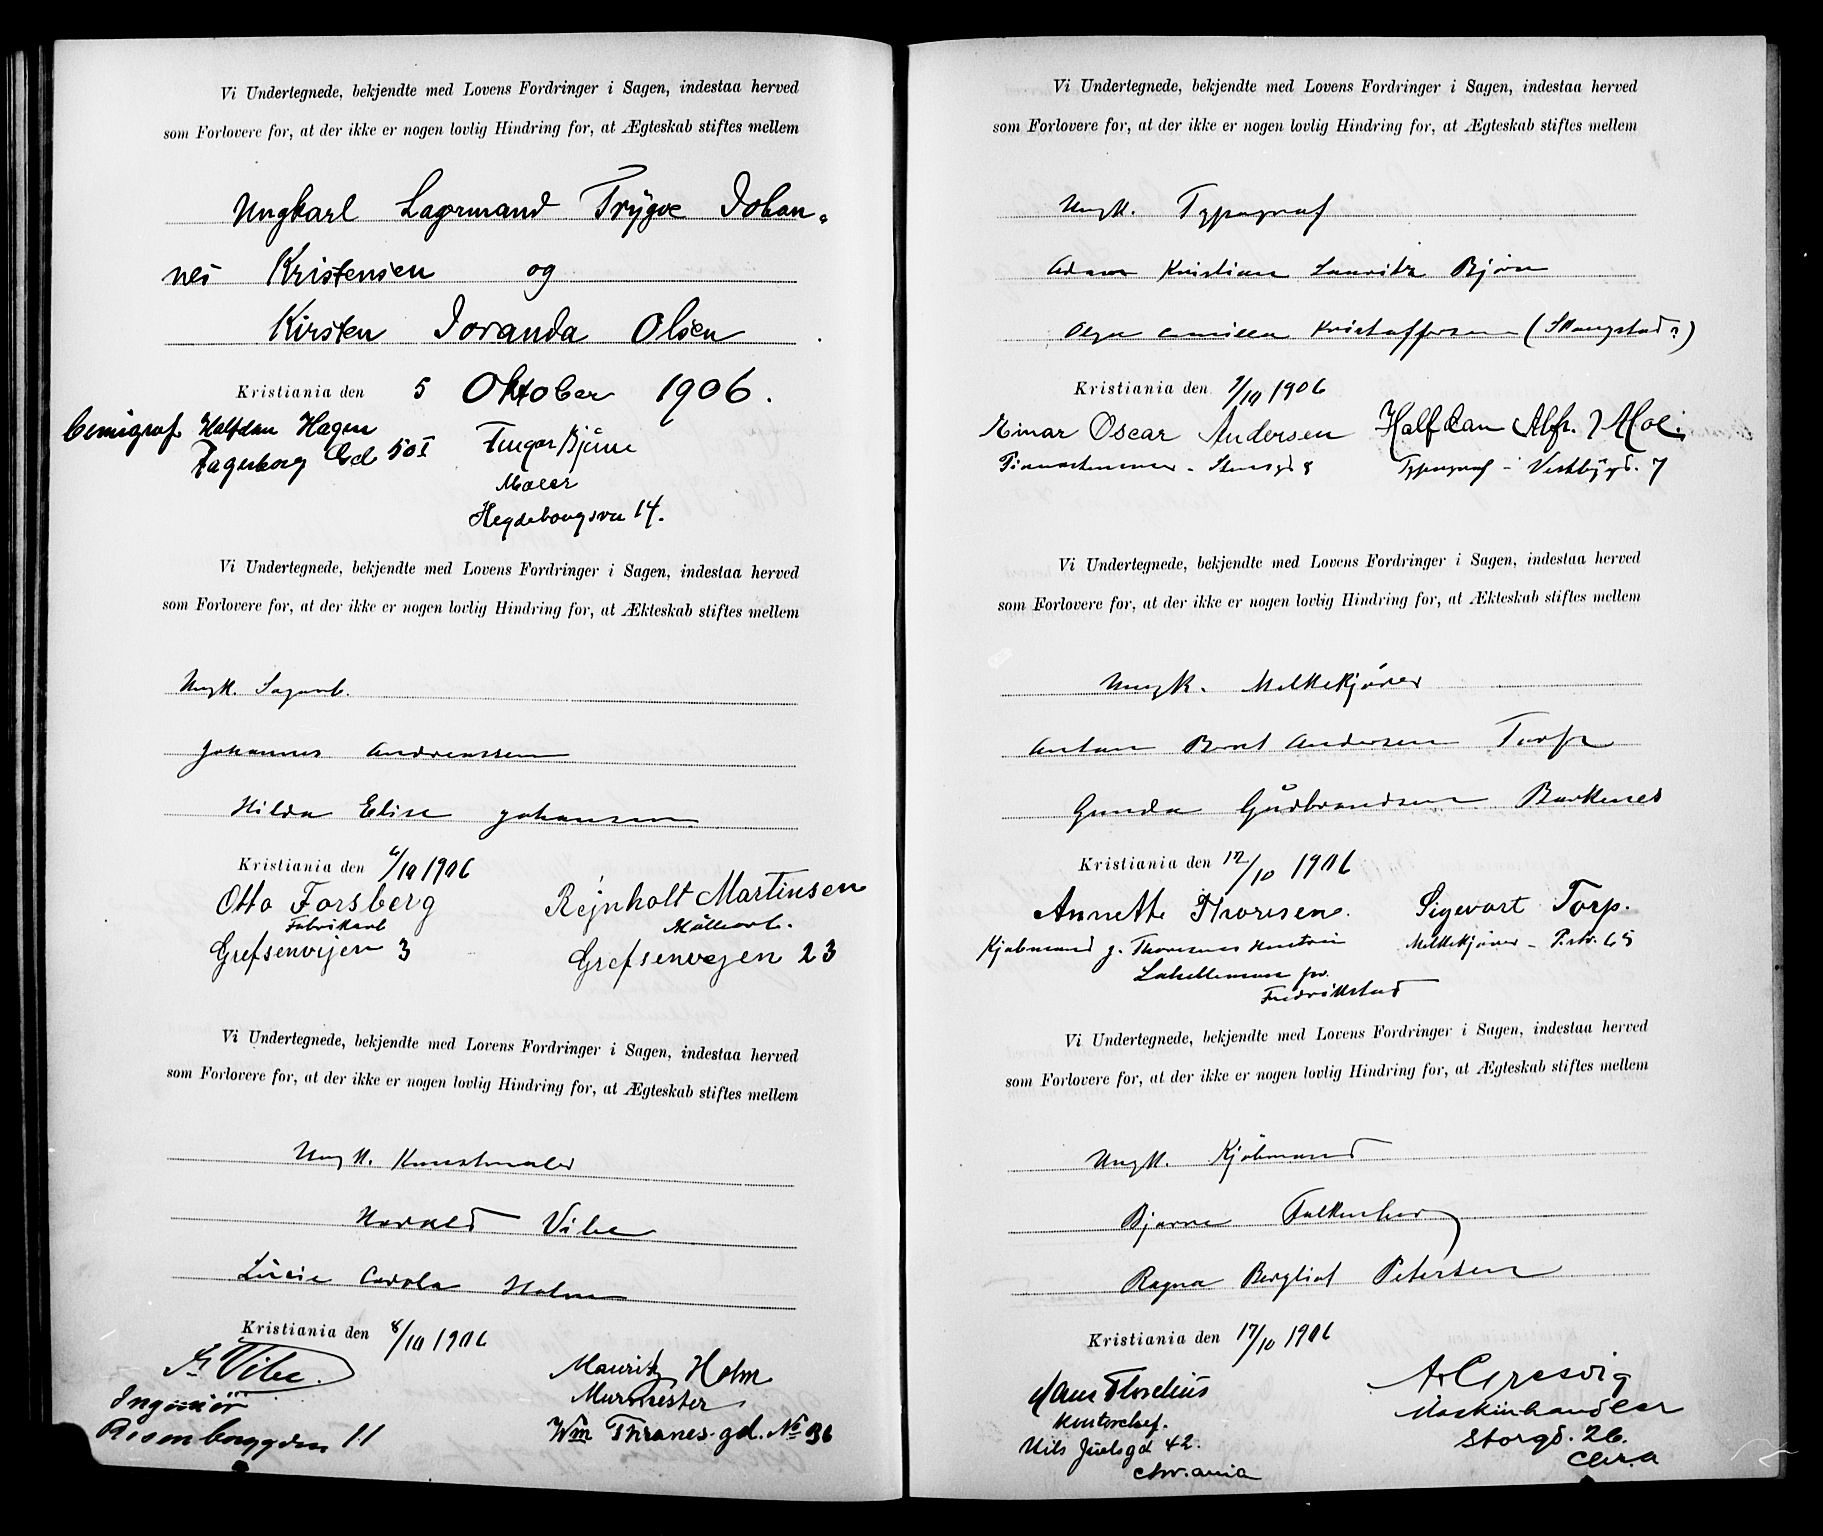 Vi Undertegnede, bekjendte med Lovens Fordringer i Sagen, indestaa herved
som Forlovere for, at der ikke er nogen lovlig Hindring for, at Ægteskab stiftes mellem
Ungkarl Lagermand Trygve Johan-
nes Kristensen og
Kirsten Jovanda Olsen
Kristiania den 5 Oktober 1906.
Cemigraf Halfdan Hagen
Fagerborg Gd 50 I
Bjune
Maler
Hegdehougsvn 14.
Vi Undertegnede, bekjendte med Lovens Fordringer i Sagen, indestaa herved
som Forlovere for, at der ikke er nogen lovlig Hindring for, at Ækteskab stiftes mellem
Ungk. Sagarb.
Johannes Andreassen
Hilda Elise Johansen
Kristiania den 6/10 1906
Otto Forsberg
Fabrikarb
Grefsenvejen 3
Rejnholt Martinsen
Møllearb.
Grefsenvejen 23
Vi Undertegnede, bekjendte med Lovens Fordringer i Sagen, indestaa herved
som Forlovere for, at der ikke er nogen lovlig Hindring for, at Ægteskab stiftes mellem
Ungk. Kunstmaler
Harald Vibe
Lucie Carola Holm
Kristiania den 8/10 1906
Vibe.
Ingeniør
Rosenborggden 11
Mauritz Holm
Murmester
Wm Thranes gd. No 36
Vi Undertegnede, bekjendte med Lovens Fordringer i Sagen, indestaa herved
som Forlovere for, at der ikke er nogen lovlig Hindring for, at Ægteskab stiftes mellem
Ungk. Typograf
Adam Kristian Lauritz Bjørn
Olga Camilla Kristoffersen (Skougstad?)
Kristiania den 9/10 1906
Einar Oscar Andersen
Pianostemmer - Stensgd 8
Halfdan Alfr. Moe
Typograf - Vestbygd. 7
Vi Undertegnede, bekjendte med Lovens Fordringer i Sagen, indestaa herved
som Forlovere for, at der ikke er nogen lovlig Hindring for, at Ækteskab stiftes mellem
Ungk. Melkekjører
Anton Bernt Andersen Torp
Gunda Gudbrandsen Barkenes
Kristiania den 12/10 1906
Annette Thoresen.
Kjøbmand J. Thoresens Hustru
pr.
Fredrikstad
Sigevart Torp.
Melkekjører - P. str. 65
Vi Undertegnede, bekjendte med Lovens Fordringer i Sagen, indestaa herved
som Forlovere for, at der ikke er nogen lovlig Hindring for, at Ægteskab stiftes mellem
Ungk. Kjøbmand
Bjarne Falkenberg
Ragna Bergliot Petersen
Kristiania den 17/10 1906
Hans Florelius
Kontorchef.
Nils Juelsgd 42.
Chr.ania
A. Gresvig
Maskinhandler
Storgd. 26.
Chr.a